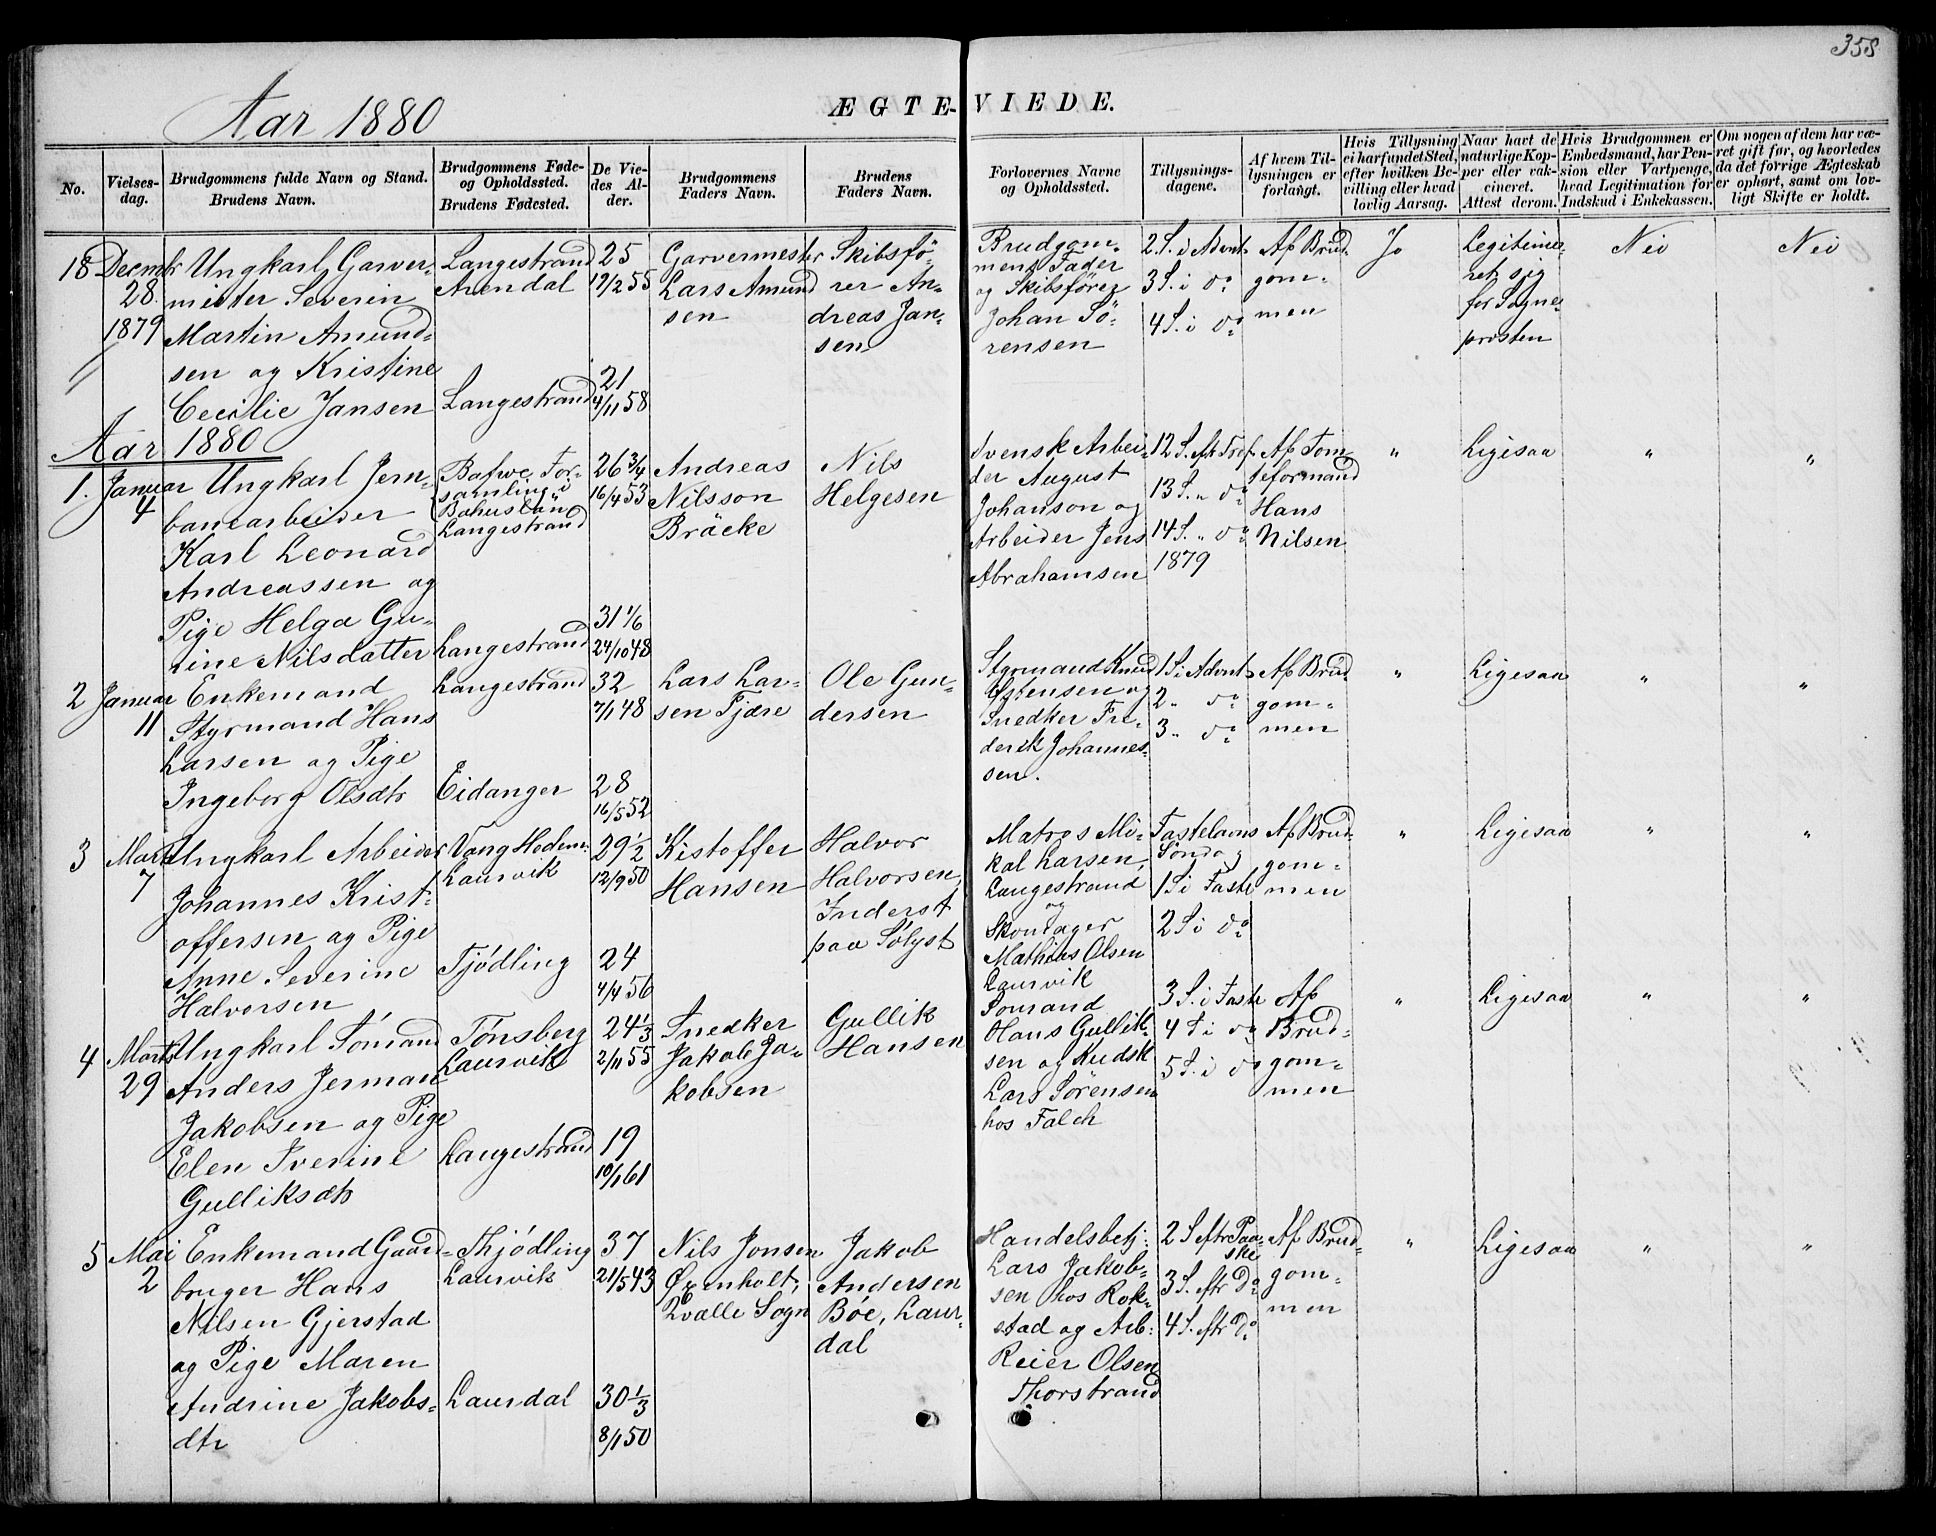 358
Aar 1880
ÆGTE-VIEDE.
No.
Vielses-
dag.
Brudgommens fulde Navn og Stand.
Brudens Navn.
Brudgommens Føde-
og Opholdssted.
Brudens Fødested.
De Vie-
des Al-
der.
Brudgommens
Faders Navn.
Brudens
Faders Navn.
Forlovernes Navne
og Opholdssted.
Tillysnings-
dagene.
Af hvem Til-
lysningen er
forlangt.
Hvis Tillysning
ei har fundet Sted,
efter hvilken Be-
villing eller hvad
lovlig Aarsag.
Naar havt de
naturlige Kop-
per eller vak-
cineret.
Attest derom.
Hvis Brudgommen er
Embedsmand, har Pen-
sion eller Vartpenge,
hvad Legitimation for
Indskud i Enkekassen.
Om nogen af dem har væ-
ret gift før, og hvorledes
da det forrige Ægteskab
er ophørt, samt om lov-
ligt Skifte er holdt.
18
Decmbr
28
1879
Ungkarl, Garver-
mester Severin
Martin Amund-
sen og Kristine
Cecilie Jansen
Langestrand
Arendal
Langestrand
25
17/2 55
21
4/11 58
Garvermester
Lars Amund
sen
Skibsfö-
rer An-
dreas Jan-
sen
Brudgom-
mens Fader
og Skibsförer
Johan Sö-
rensen
2 S. i Advent
3 S. i do
4 S. i do
Af Brud-
gom-
men
Jo
Legitime-
ret sig
for Sogne-
presten
Nei
Nei
Aar 1880
1.
Januar
4
Ungkarl Jern-
banearbeider
Karl Leonard
Andreassen og
Pige Helga Gu-
rine Nilsdatter
Bafwe For-
samling i
Bahuslän
Langestrand
Langestrand
26 3/4
16/4 53
31 1/6
24/10 48
Andreas
Nilsson
Bräcke
Nils
Helgesen
Svensk Arbei-
der August
Johanson og
Arbeider Jens
Abrahamsen
12 S. eft Tref
13 S. " do
14 S. " do
1879
Af Tom-
teformand
Hans
Nilsen
"
Ligesaa
"
"
2
Januar
11
Enkemand
Styrmand Hans
Larsen og Pige
Ingeborg Olsdtr
Langestrand
Eidanger
32
7/1 48
28
16/5 52
Lars Lar-
sen Fjære
Ole Gun-
dersen
Styrmand Knud
Østensen og
Snedker Fre-
derik Johannes-
sen.
1 S i Advent
2 " do
3 " do
Af Brud-
gom-
men
"
Ligesaa
"
"
3
Marts
7
Ungkarl Arbeider
Johannes Krist-
offersen og Pige
Anne Severine
Halvorsen
Vang Hedem:
Laurvik
Tjödling
29 1/2
12/9 50
24
4/4 56
Kistoffer
Hansen
Halvor
Halvorsen,
Inderst
paa Sölyst
Matros Mi-
kal Larsen,
Langestrand
og
Skomager
Mathias Olsen
Laurvik
Fastelavns
Söndag
1 S i Faste
2 S i do
Af Brud-
gom-
men
"
Ligesaa
"
"
4
Marts
29
Ungkarl Sömand
Anders Jerman
Jakobsen og Pige
Elen Iverine
Gulliksdtr
Tönsberg
Laurvik
Langestrand
24 1/3
2/11 55
19
10/1 61
Snedker
Jakob Ja-
kobsen
Gullik
Hansen
Sömand
Hans Gullik-
sen og Kudsk
Lars Sörensen
hos Falch
3 S. i Faste
4 S i do
5 S. i do
Af
Brud-
gom-
men
"
Ligesaa
"
"
5
Mai
2
Enkemand Gaard-
bruger Hans
Nilsen Gjerstad
og Pige Maren
Andrine Jakobs-
dtr
Thjödling
Laurvik
Laurdal
37
21/5 43
30 1/3
8/1 50
Nils Jonsen
Øxenholt,
Qvalle Sogn
Jakob
Andersen
Böe, Laur-
dal
Handelsbetj:
Lars Jakob-
sen hos Rok-
stad og Arb:
Reier Olsen
Thorstrand
2 S eftr Paa-
ske
3 S. eftr Do
4 S. eftr Do
Af Brud-
gom-
men
"
Ligesaa
"
"